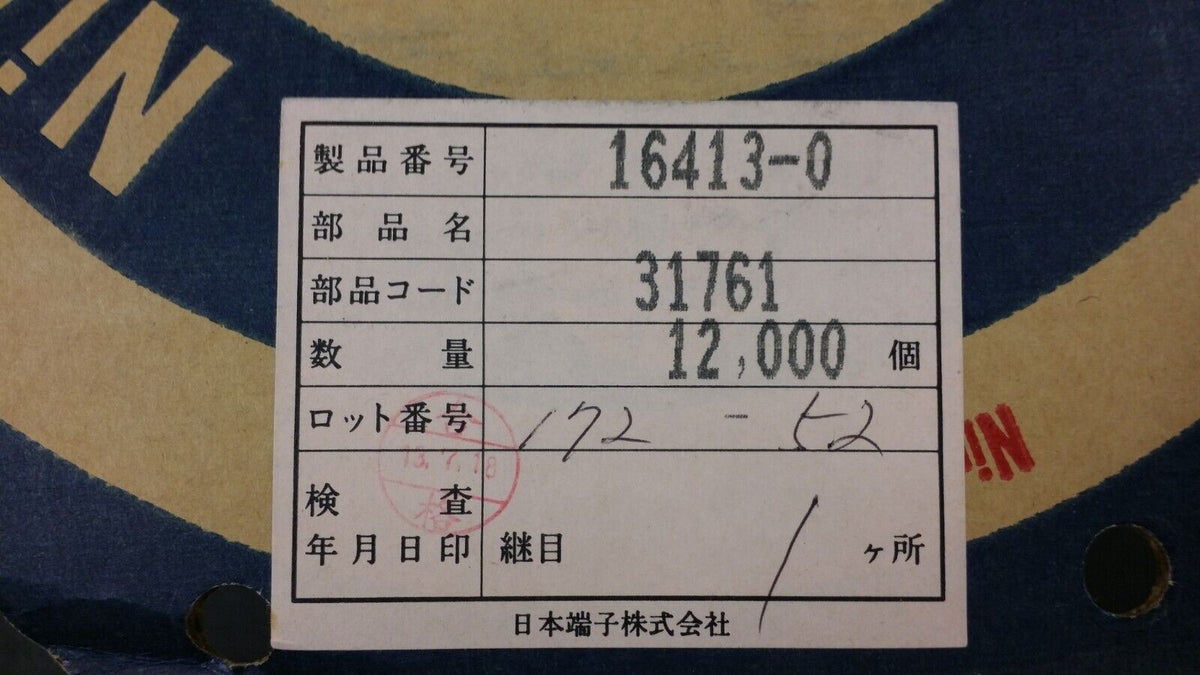 Ni
製品番号 16413-0
部品名
部品コード 31761
数量 12,000 個
ロット番号 172 - 52
検査
年月日印
13.7.18
格
継目 1 ヶ所
日本端子株式会社
Ni